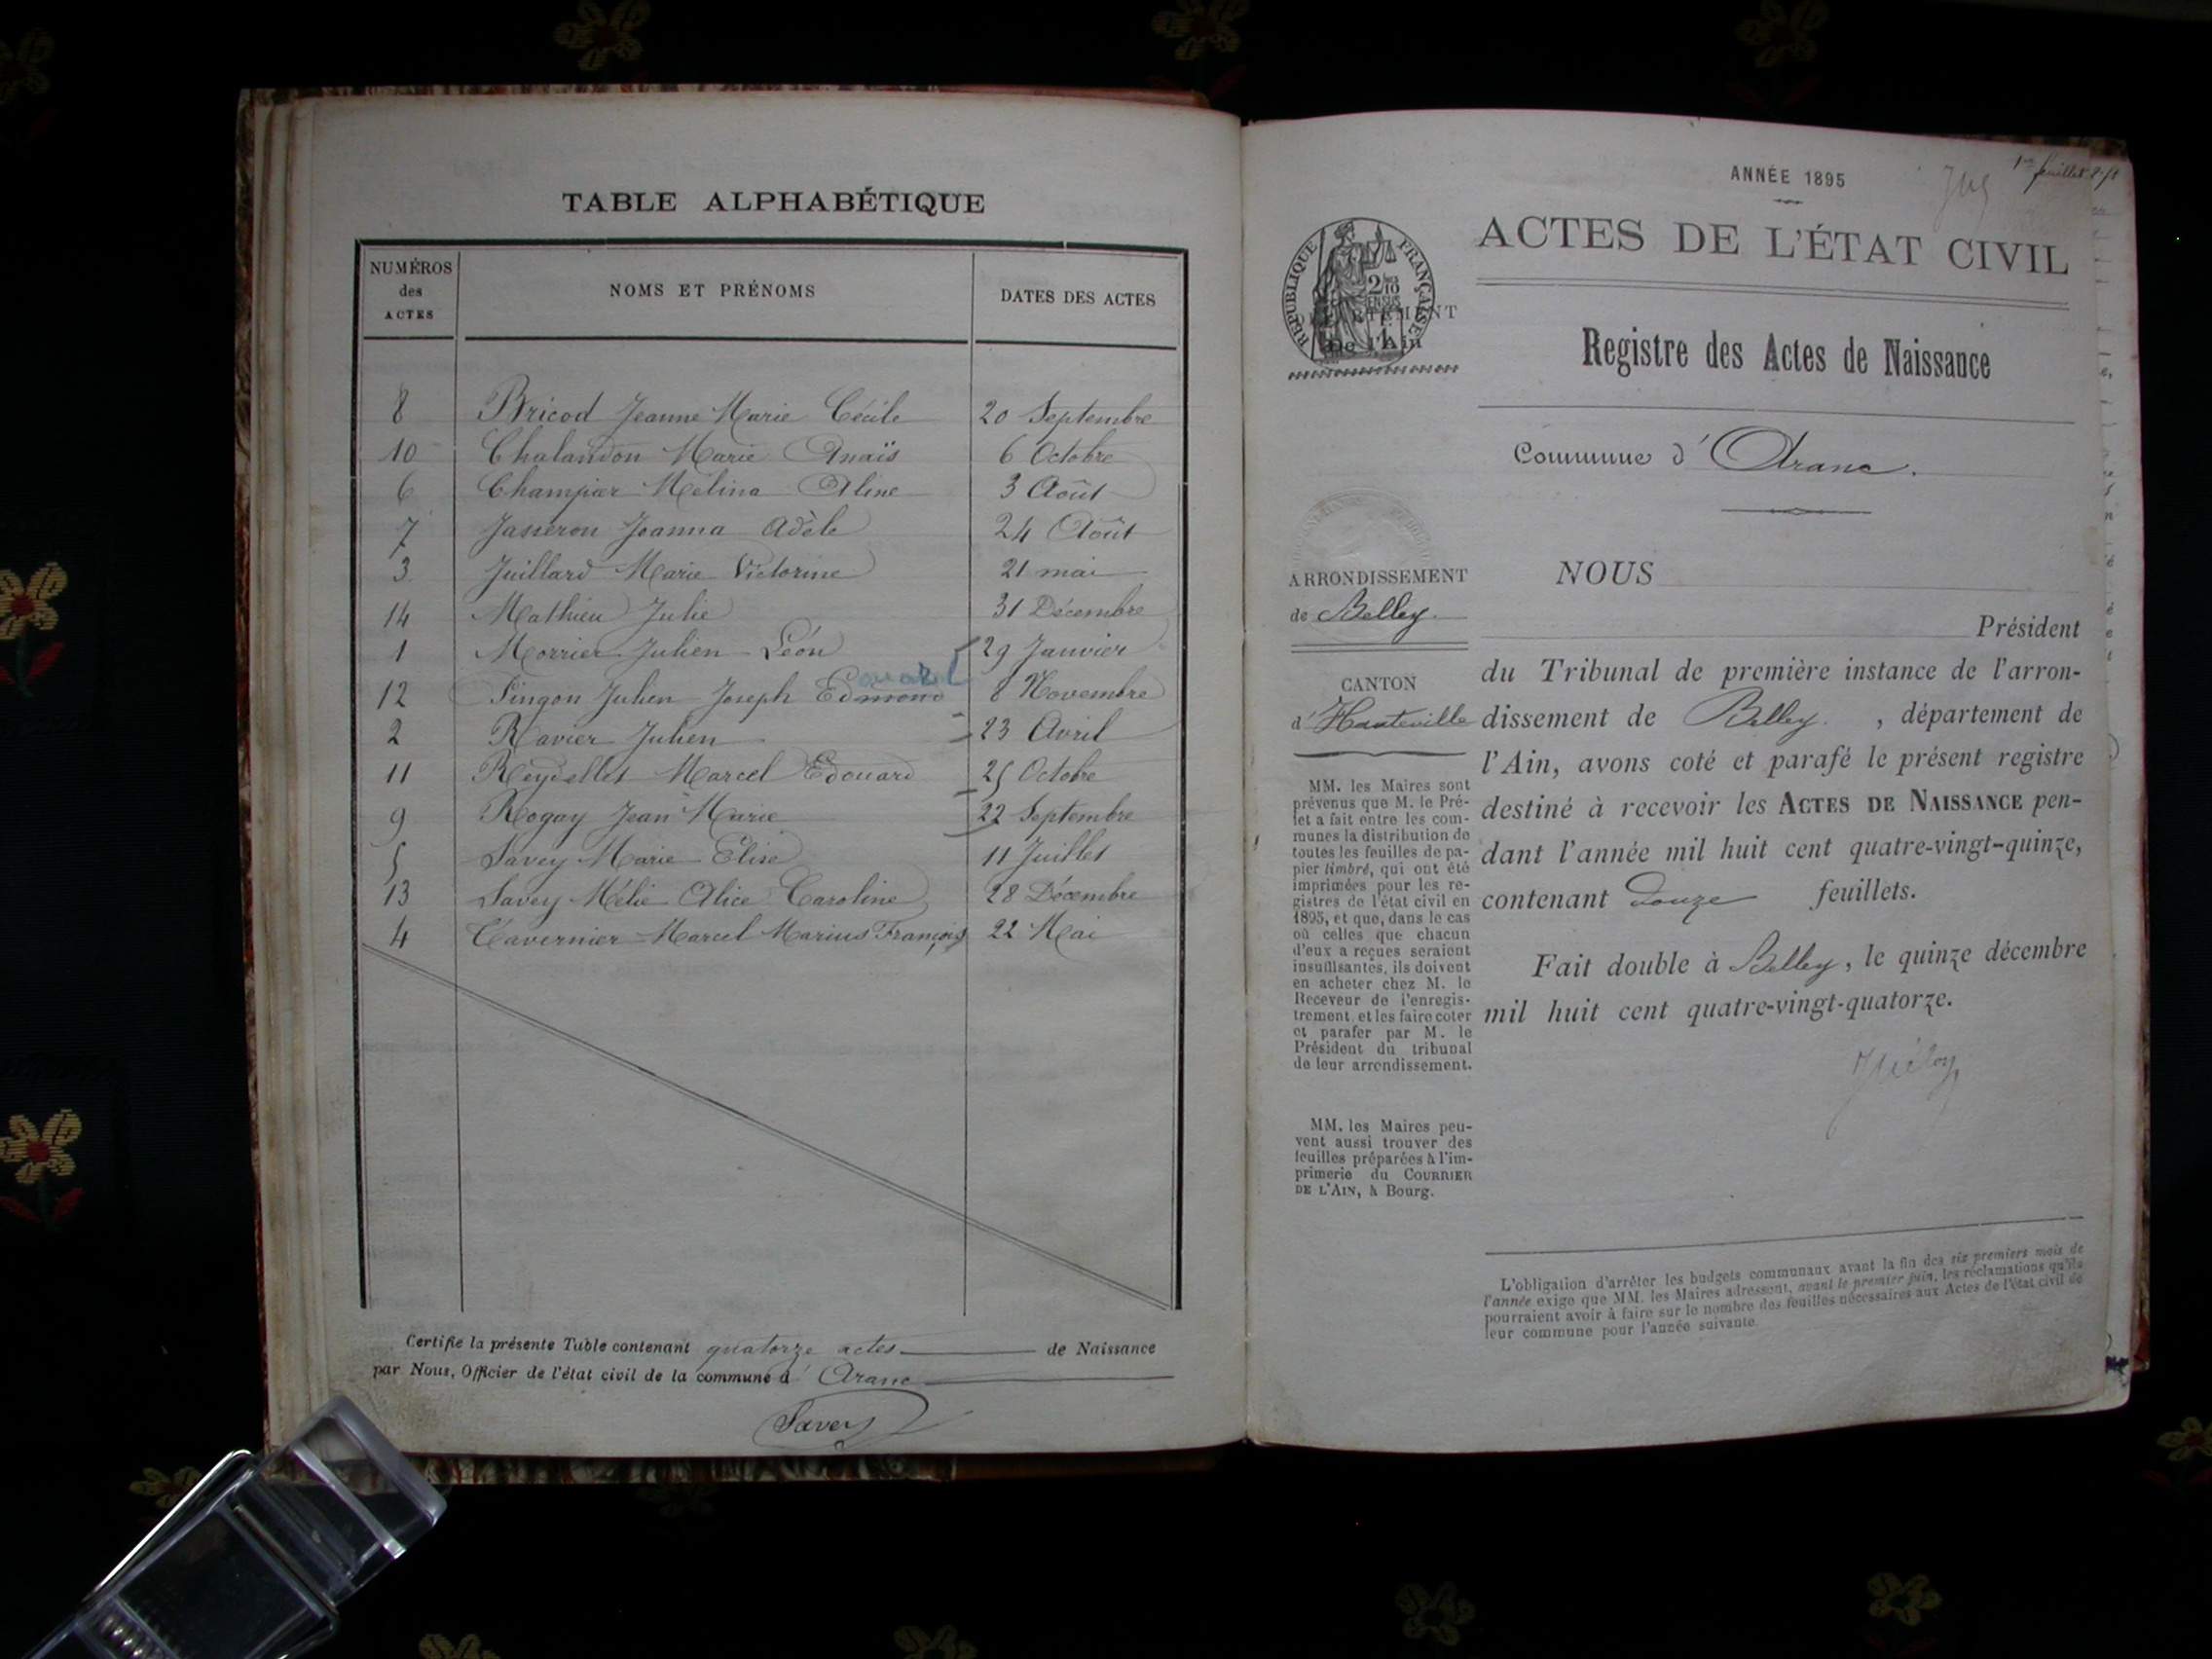 TABLE ALPHABÉTIQUE
NUMÉROS des ACTES
NOMS ET PRÉNOMS
DATES DES ACTES
8 Bricod Jeanne Marie Cécile 20 Septembre
10 Chalandon Marie Anaïs 6 Octobre
6 Champier Mélina Aline 3 Août
7 Jasseron Joanna Adèle 24 Août
3 Juillard Marie Victorine 21 mai
14 Mathieu Julie 31 Décembre
1 Morrier Julien Léon 29 Janvier
12 Pingon Julien Joseph Edmond 8 Novembre
2 Ravier Julien 23 Avril
11 Reydellet Marcel Edouard 25 Octobre
9 Rogay Jean Marie 22 Septembre
5 Savey Marie Elise 11 Juillet
13 Savey Mélie Alice Caroline 28 Décembre
4 Tavernier Marcel Marius François 22 Mai
Certifie la présente Table contenant quatorze actes de Naissance
par Nous, Officier de l'état civil de la commune d' Aranc
Savey
1er feuillet
ANNÉE 1895
ACTES DE L'ÉTAT CIVIL
RÉPUBLIQUE FRANÇAISE
DÉPARTEMENT
De l'Ain
Registre des Actes de Naissance
Commune d' Aranc.
ARRONDISSEMENT
de Belley.
CANTON
d' Hauteville
MM. les Maires sont
prévenus que M. le Pré-
fet a fait entre les com-
munes la distribution de
toutes les feuilles de pa-
pier timbré, qui ont été
imprimées pour les re-
gistres de l'état civil en
1895, et que, dans le cas
où celles que chacun
d'eux a reçues seraient
insuffisantes, ils doivent
en acheter chez M. le
Receveur de l'enregis-
trement, et les faire coter
et parafer par M. le
Président du tribunal
de leur arrondissement.
MM. les Maires peu-
vent aussi trouver des
feuilles préparées à l'im-
primerie du COURRIER
DE L'AIN, à Bourg.
NOUS
Président
du Tribunal de première instance de l'arron-
dissement de Belley. , département de
l'Ain, avons coté et parafé le présent registre
destiné à recevoir les ACTES DE NAISSANCE pen-
dant l'année mil huit cent quatre-vingt-quinze,
contenant douze feuillets.
Fait double à Belley, le quinze décembre
mil huit cent quatre-vingt-quatorze.
L'obligation d'arrêter les budgets communaux avant la fin des six premiers mois de
l'année exige que MM. les Maires adressent, avant le premier juin, les réclamations qu'ils
pourraient avoir à faire sur le nombre des feuilles nécessaires aux Actes de l'état civil de
leur commune pour l'année suivante.